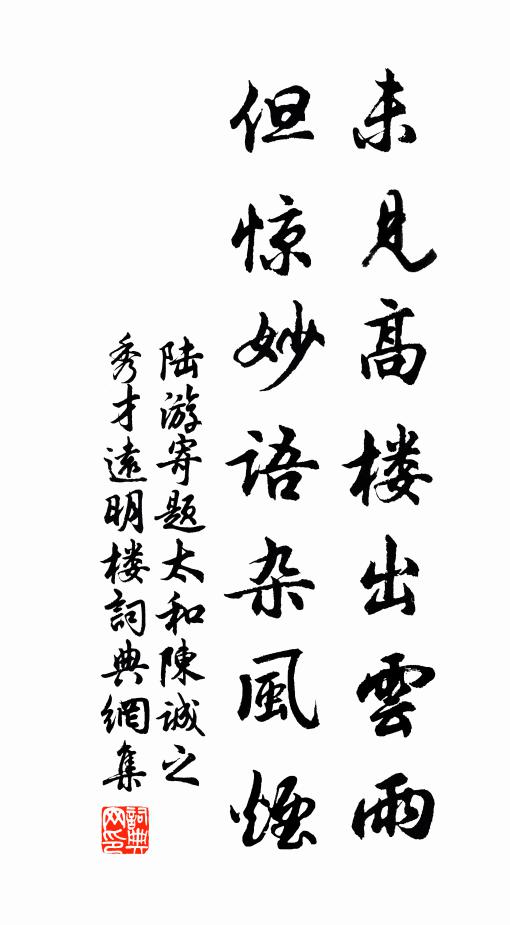 未見高楼出雲雨
但惊妙语杂風煙
陆游寄题太和陳诚之
秀才遠明楼詞典網集
詞典网印